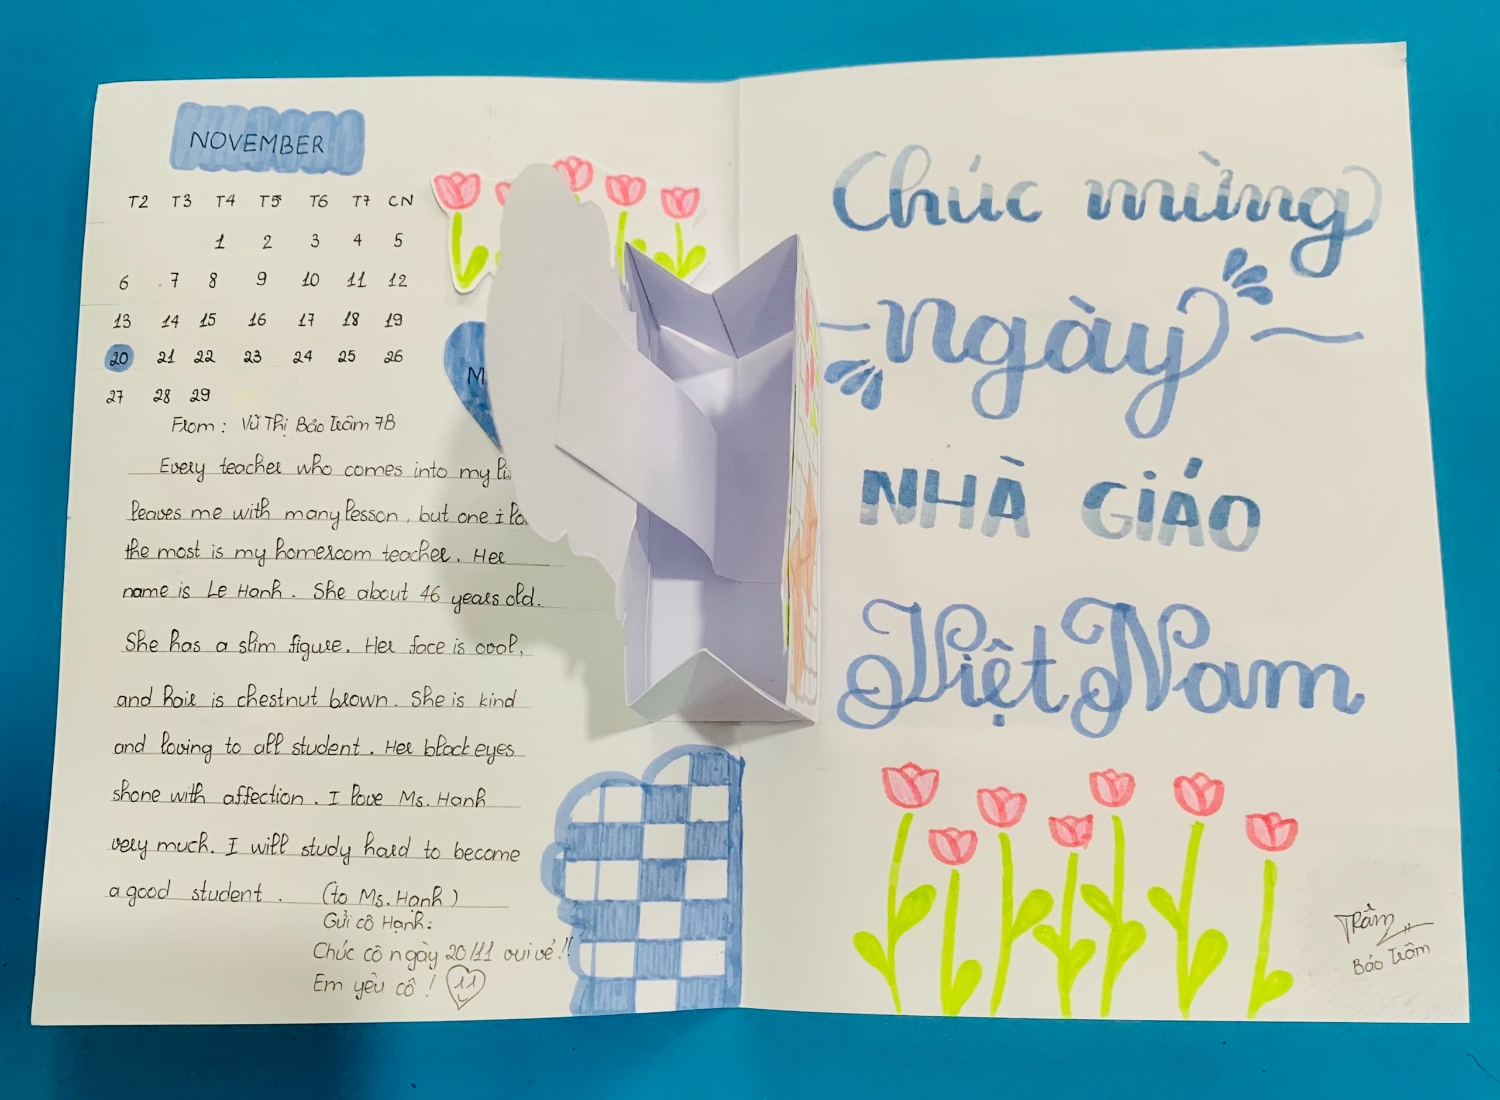 NOVEMBER
T2 T3 T4 T5 T6 T7 CN
1 2 3 4 5
6 7 8 9 10 11 12
13 14 15 16 17 18 19
20 21 22 23 24 25 26
27 28 29
From: Vũ Thị Bảo Trâm 7B
Every teacher who comes into my
leaves me with many lesson, but one i
the most is my homeroom teacher. Her
name is Le Hanh. She about 46 years old.
She has a slim figure. Her face is cool,
and hair is chestnut brown. She is kind
and loving to all student. Her black eyes
shone with affection. I love Ms. Hanh
very much. I will study hard to become
a good student. (to Ms. Hạnh)
Gửi cô Hạnh:
Chúc cô ngày 20/11 vui vẻ!!
Em yêu cô!
Chúc mừng
ngày
NHÀ GIÁO
Việt Nam
Trâm
Bảo Trâm